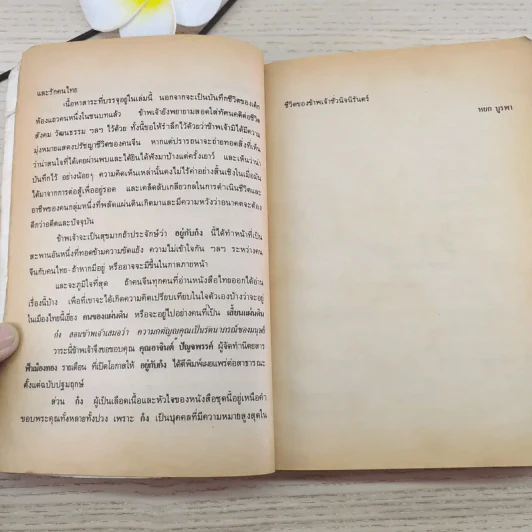 และรักคนไทย
เนื้อหาสาระที่บรรจุอยู่ในเล่มนี้ นอกจากจะเป็นบันทึกชีวิตของเด็ก
ห้องแถวคนหนึ่งในชนบทแล้ว ข้าพเจ้ายังพยายามสอดใส่ทัศนคติต่อชีวิต
สังคม วัฒนธรรม ฯลฯ ไว้ด้วย ทั้งนี้ขอให้รำลึกไว้ด้วยว่าข้าพเจ้ามิได้มีความ
มุ่งหมายแสดงปรัชญาชีวิตของคนจีน หากแต่ปรารถนาจะถ่ายทอดสิ่งที่เห็น
ว่าน่าสนใจที่ได้เคยผ่านพบและได้ยินได้ฟังมาบ้างแต่ครั้งเยาว์ และเห็นว่าน่า
บันทึกไว้ อย่างน้อยๆ ความคิดเห็นเหล่านั้นคงไม่ไร้ค่าอย่างสิ้นเชิงในเมื่อมัน
ได้มาจากการต่อสู้เพื่ออยู่รอด และเคล็ดลับเกลียวกลในการดำเนินชีวิตและ
อาชีพของคนกลุ่มหนึ่งที่พลัดแผ่นดินเกิดมาและมีความหวังว่าอนาคตจะต้อง
ดีกว่าอดีตและปัจจุบัน
ข้าพเจ้าจะเป็นสุขมากถ้าประจักษ์ว่า อยู่กับก๋ง นี้ได้ทำหน้าที่เป็น
สะพานอันหนึ่งที่ทอดข้ามความขัดแย้ง ความไม่เข้าใจกัน ฯลฯ ระหว่างคน
จีนกับคนไทย-ถ้าหากมีอยู่ หรืออาจจะมีขึ้นในกาลภายหน้า
และจะภูมิใจที่สุด ถ้าคนจีนทุกคนที่อ่านหนังสือไทยออกได้อ่าน
เรื่องนี้บ้าง เพื่อที่เขาจะได้เกิดความคิดเปรียบเทียบในใจตัวเองบ้างว่าจะอยู่
ในเมืองไทยนี้เยี่ยง คนของแผ่นดิน หรือจะอยู่ไปอย่างคนที่เป็น เสี้ยนแผ่นดิน
ก๋ง สอนข้าพเจ้าเสมอว่า ความกตัญญูคุณเป็นรัตนาภรณ์ของมนุษย์
วาระนี้ข้าพเจ้าจึงขอขอบคุณ คุณอาจินต์ ปัญจพรรค์ ผู้จัดทำนิตยสาร
ฟ้าเมืองทอง รายเดือน ที่เปิดโอกาสให้ อยู่กับก๋ง ได้ตีพิมพ์เผยแพร่ต่อสาธารณะ
ตั้งแต่ฉบับปฐมฤกษ์
ส่วน ก๋ง ผู้เป็นเลือดเนื้อและหัวใจของหนังสือชุดนี้อยู่เหนือคำ
ขอบพระคุณทั้งหลายทั้งปวง เพราะ ก๋ง เป็นบุคคลที่มีความหมายสูงสุดใน
ชีวิตของข้าพเจ้าชั่วนิจนิรันดร์
หยก บูรพา